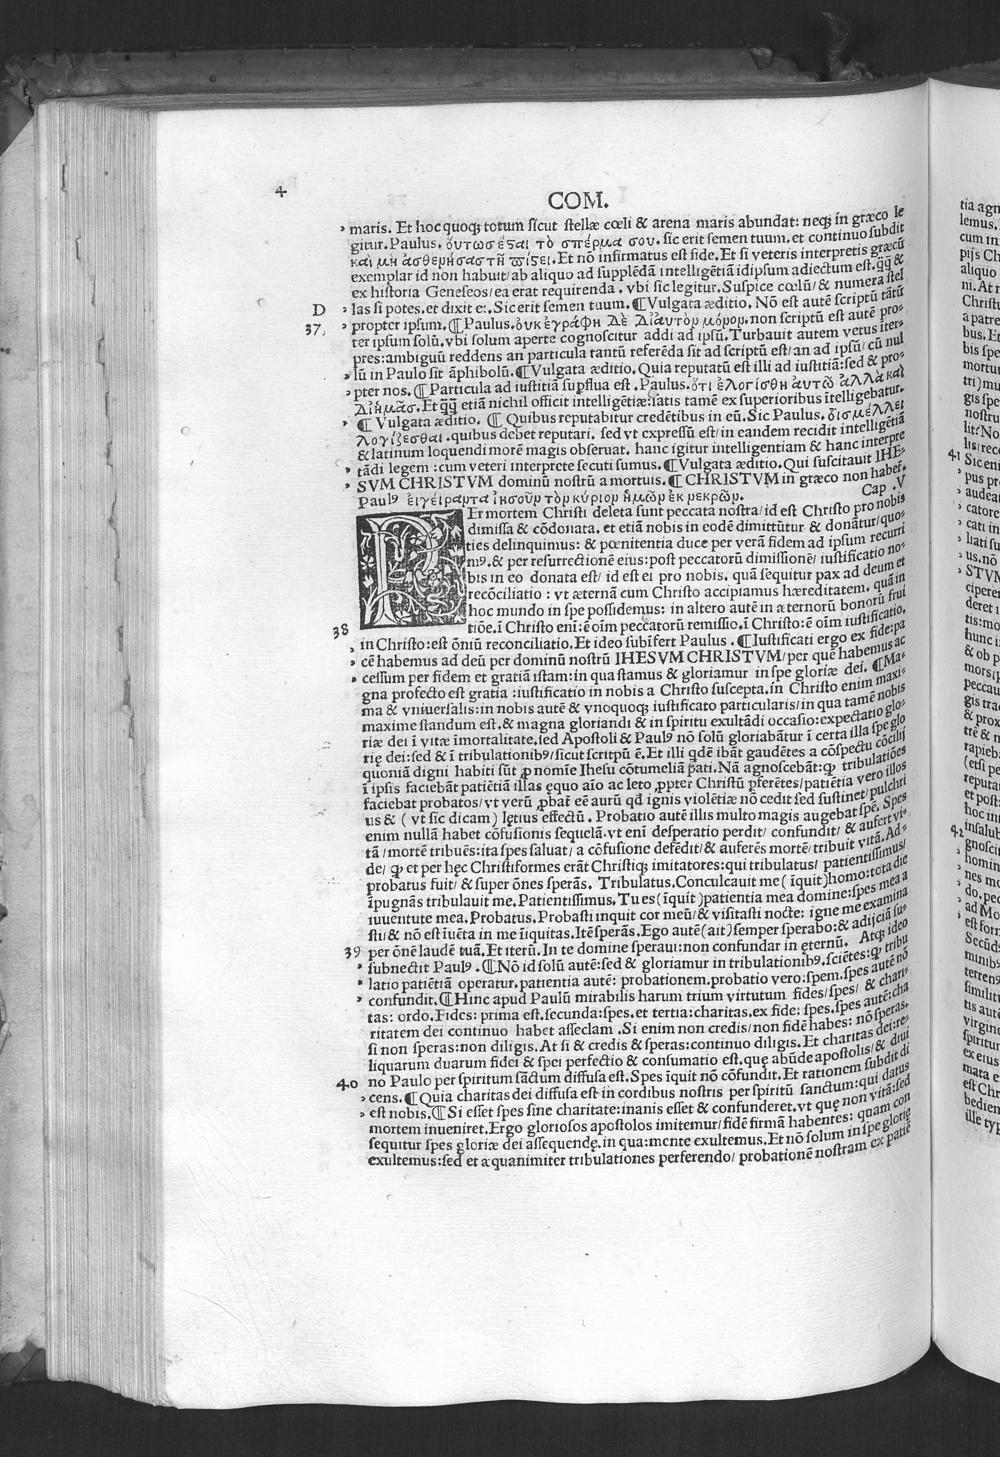 4
COM.
› maris. Et hoc quoqꝫ totum sicut stellæ cœli & arena maris abundat: neqꝫ in græco le
gitur. Paulus. ὁυτωσ ἔςαι τὸ σπέρμα σου. sic erit semen tuum. et continuo subdit
καὶ μὴ ἀσθενήσασ τῇ πίςει. Et nō infirmatus est fide. Et si veteris interpretis græcū
exemplar id non habuit/ ab aliquo ad supplēdā intelligētiā idipsum adiectum est. &
ex historia Geneseos/ ea erat requirenda. vbi sic legitur. Suspice cœlū/ & numera stel
D › las si potes. et dixit ei. Sic erit semen tuum. ¶ Vulgata æditio. Nō est autē scriptū tātū
37. › propter ipsum. ¶ Paulus. ὀυκ ἐγράφη Δὲ Δἰ ἀυτὸν μόνον. non scriptū est autē pro-
ter ipsum solū. vbi solum aperte cognoscitur addi ad ipsū. Turbauit autem vetus iter-
pres: ambiguū reddens an particula tantū referēda sit ad scriptū est/ an ad ipsū/ cū nul
› lū in Paulo sit āphibolū. ¶ Vulgata æditio. Quia reputatū est illi ad iustitiā: sed & pro-
› pter nos. ¶ Particula ad iustitiā supflua est. Paulus. ὅτι ἐλογίσθη ἀυτῷ ἀλλὰ καὶ
Δἰ ἡμᾶσ. Et etiā nichil officit intelligētiæ: satis tamē ex superioribus ītelligebatur.
› ¶ Vulgata æditio. ¶ Quibus reputabitur credētibus in eū. Sic Paulus. ὅισ μέλλει
λογίζεσθαι. quibus debet reputari. sed vt expressū est/ in eandem recidit intelligētiā
& latinum loquendi morē magis obseruat. hanc igitur intelligentiam & hanc interpre
› tādi legem: cum veteri interprete secuti sumus. ¶ Vulgata æditio. Qui suscitauit IHE-
› SVM CHRISTVM dominū nostrū a mortuis. ¶ CHRISTVM in græco non habet.
Paulꝰ ἐιγείραντα ἰησοῦν τὸν κύριον ἡμῶν ἐκ νεκρῶν. Cap. V
PEr mortem Christi deleta sunt peccata nostra/ id est Christo pro nobis
dimissa & cōdonata. et etiā nobis in eodē dimittūtur & donātur/ quo-
ties delinquimus: & pœnitentia duce per verā fidem ad ipsum recurri
mꝰ. & per resurrectionē eius: post peccatorū dimissionē/ iustificatio no-
bis in eo donata est/ id est ei pro nobis. quā sequitur pax ad deum et
recōciliatio: vt æternā cum Christo accipiamus hæreditatem. quā in
hoc mundo in spe possidemus: in altero autē in æternorū bonorū frui
38 tiōe. ī Christo eni: ē oīm peccatorū remissio. ī Christo: ē oīm iustificatio.
› in Christo: est ōniū reconciliatio. Et ideo subīfert Paulus. ¶ Iustificati ergo ex fide: pa
› cē habemus ad deū per dominū nostrū IHESVM CHRISTVM/ per quē habemus ac
› cessum per fidem et gratiā istam: in qua stamus & gloriamur in spe gloriæ dei. ¶ Ma-
gna profecto est gratia: iustificatio in nobis a Christo suscepta. in Christo enim maxi-
ma & vniuersalis: in nobis autē & vnoquoqꝫ iustificatio particularis/ in qua tamē nobis
maxime standum est. & magna gloriandi & in spiritu exultādi occasio: expectatio glo-
riæ dei ī vitæ īmortalitate. sed Apostoli & Paulꝰ nō solū gloriabātur ī certa illa spe glo
rię dei: sed & ī tribulationibꝰ/ sicut scritpū ē. Et illi qdē ibāt gaudētes a cōspectu cōcilij
quoniā digni habiti sūt ꝓ nomīe Ihesu cōtumeliā pati. Nā agnoscebāt: ꝙ tribulatiōes
ī ipsis faciebāt patiētiā illas ęquo aīo ac leto ꝓpter Christū pferētes/ patiētia vero illos
faciebat probatos/ vt verū ꝓbat eē aurū qd ignis violētiæ nō cedit sed sustinet/ pulchri
us & (vt sic dicam) lętius effectū. Probatio autē illis multo magis augebat spē. Spes
enim nullā habet cōfusionis sequelā. vt eni desperatio perdit/ confundit/ & aufert vi-
tā/ mortē tribuēs: ita spes saluat/ a cōfusione defēdit/ & auferēs mortē/ tribuit vitā. Ad-
de/ ꝙ et per hęc Christiformes erāt Christiqꝫ imitatores: qui tribulatus/ patientissimus/
probatus fuit/ & super ōnes sperās. Tribulatus. Conculcauit me (īquit) homo: tota die
īpugnās tribulauit me. Patientissimus. Tu es (īquit) patientia mea domine: spes mea a
iuuentute mea. Probatus. Probasti inquit cor meū/ & visitasti nocte: igne me examina
sti/ & nō est īuēta in me īiquitas. Itē sperās. Ego autē (ait) semper sperabo: & adijciā su-
39 per ōnē laudē tuā. Et iterū. In te domine speraui: non confundar in ęternū. Atqꝫ ideo
› subnectit Paulꝰ. ¶ Nō id solū autē: sed & gloriamur in tribulationibꝰ. sciētes: ꝙ tribu
› latio patiētiā operatur. patientia autē: probationem. probatio vero: spem. spes autē nō
› confundit. ¶ Hinc apud Paulū mirabilis harum trium virtutum fides/ spes/ & chari-
tas: ordo. Fides: prima est. secunda: spes. et tertia: charitas. ex fide: spes. spes autē: cha
ritatem dei continuo habet asseclam. Si enim non credis/ non fidē habes: nō speras.
si non speras: non diligis. At si & credis & speras: continuo diligis. Et charitas dei: re-
liquarum duarum fidei & spei perfectio & consumatio est. quę abūde apostolis/ & diui
40 no Paulo per spiritum sāctum diffusa est. Spes īquit nō cōfundit. Et rationem subdit di
› cens. ¶ Quia charitas dei diffusa est in cordibus nostris per spiritū sanctum: qui datus
› est nobis. ¶ Si esset spes sine charitate: inanis esset & confunderet. vt quę non vitā: sed
mortem inueniret. Ergo gloriosos apostolos imitemur/ fidē firmā habentes: quam con
sequitur spes gloriæ dei assequendę. in qua: mente exultemus. Et nō solum in spe glorię
exultemus: sed et æquanimiter tribulationes perferendo/ probationē nostram ex patiē
tia agn
lemus.
cum in
pijs Ch
aliquo
ni. At
Christ
a patre
bus. Et
bis spe
mortu
tri) mu
gis spe
nostru
lit? No
lis/ rec
41 Sic eni
› pus pr
› audea
› catore
› cati in
› liati su
› us. nō
› STVM
ciperen
deret i
tis: mo
hunc i
& ob p
mors/
peccau
gis tra
& prox
trē & n
rapieb
(etsi pe
reputa
et post
hoc in
42 insalub
› gnosci
› homin
› nes mo
› do. pec
› ad Mo
est form
Secūd
minibꝰ
terrenꝰ
similitu
tis autē
virgine
spiritu
ex eius
mata e
est Chr
bedien
ille typ